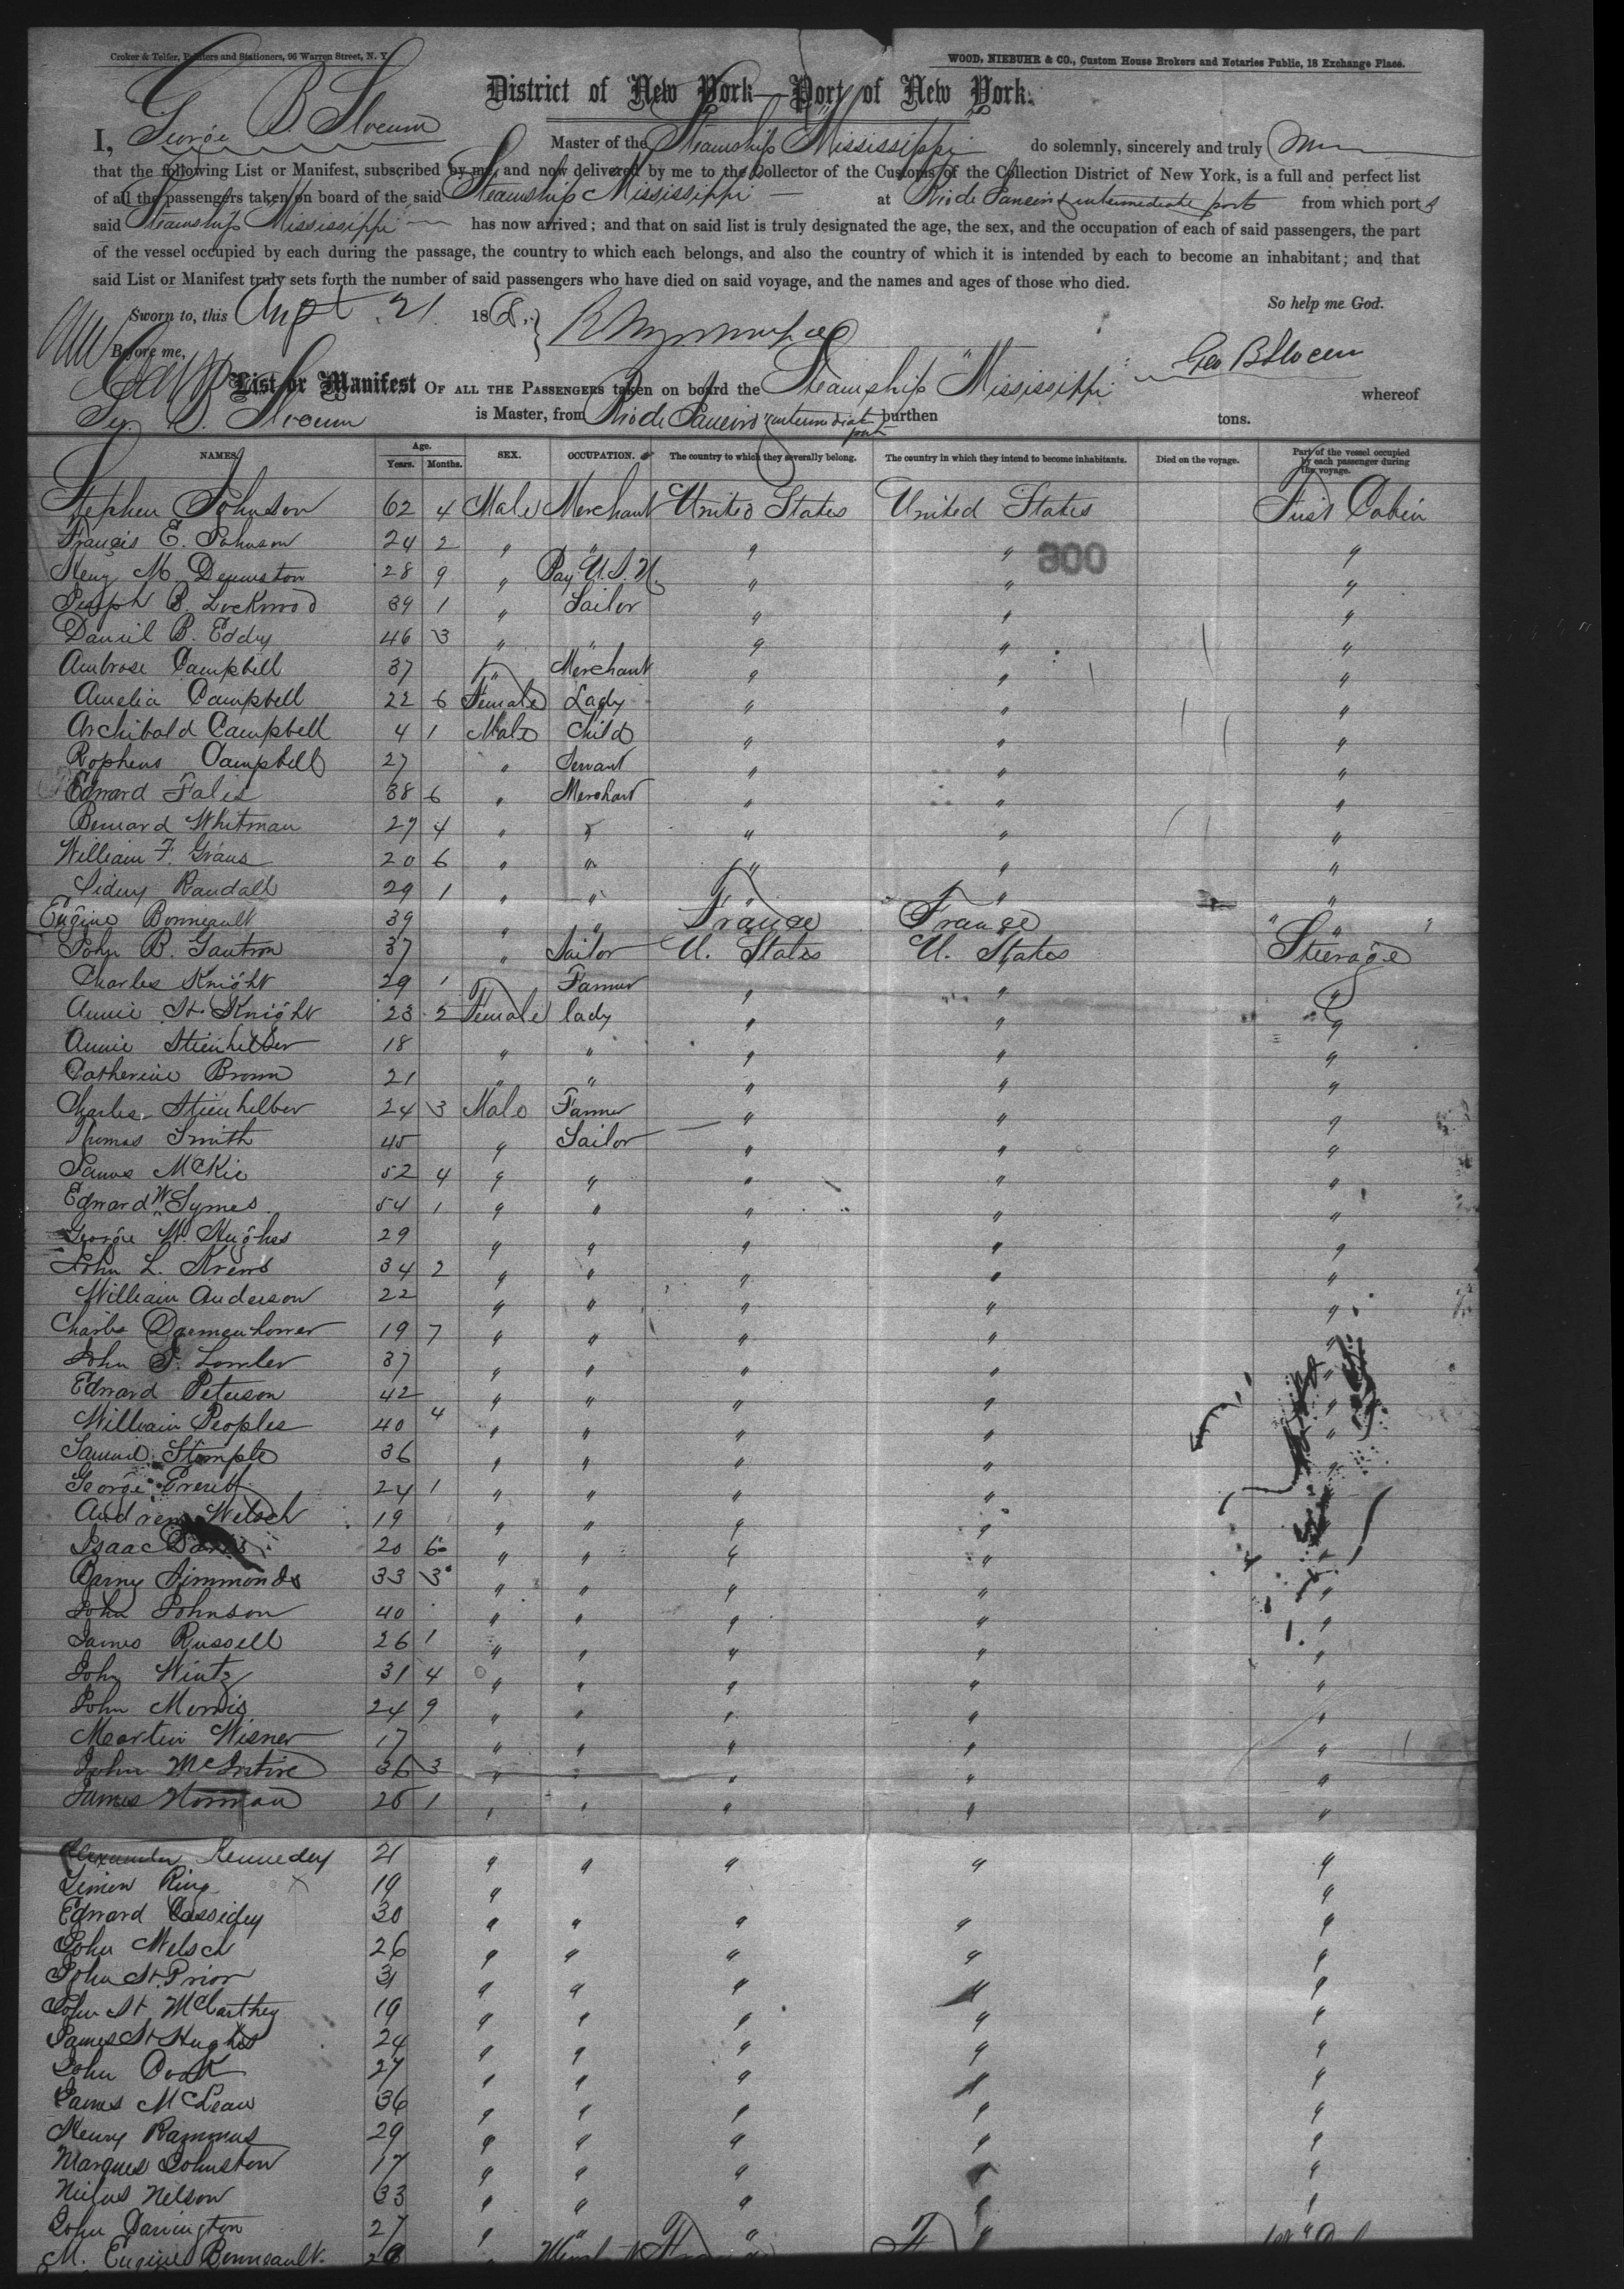 Croker & Telfer, Printers and Stationers, 96 Warren Street, N. Y.
WOOD, NIEBUHR & CO., Custom House Brokers and Notaries Public, 18 Exchange Place.
District of New York—Port of New York.
I, George B. Slocum Master of the Steamship "Mississippi" do solemnly, sincerely and truly
that the following List or Manifest, subscribed by me, and now delivered by me to the Collector of the Customs of the Collection District of New York, is a full and perfect list
of all the passengers taken on board of the said Steamship Mississippi — at Rio de Janeiro & intermediate ports from which ports
said Steamship Mississippi — has now arrived; and that on said list is truly designated the age, the sex, and the occupation of each of said passengers, the part
of the vessel occupied by each during the passage, the country to which each belongs, and also the country of which it is intended by each to become an inhabitant; and that
said List or Manifest truly sets forth the number of said passengers who have died on said voyage, and the names and ages of those who died.
So help me God.
Sworn to, this 21 1868.
Before me,
Geo B Slocum
List or Manifest OF ALL THE PASSENGERS taken on board the Steamship "Mississippi" whereof
Geo. B. Slocum is Master, from Rio de Janeiro & intermediate port burthen tons.
NAMES. Age. Years. Months. SEX. OCCUPATION. The country to which they severally belong. The country in which they intend to become inhabitants. Died on the voyage. Part of the vessel occupied by each passenger during the voyage.
Stephen Johnson 62 4 Male Merchant United States United States First Cabin
Francis E. Johnson 24 2 " " " " "
300
Henry M. Denniston 28 9 " Pay U.S.N. " " "
Joseph B. Lockwood 39 1 " Sailor " " "
Daniel B. Eddy 46 3 " " " " "
Ambrose Campbell 37 " Merchant " " "
Amelia Campbell 22 6 Female Lady " " "
Archibald Campbell 4 1 Male Child " " "
Campbell 27 " Servant " " "
Edward Fales 38 6 " Merchant " " "
Bernard Whitman 27 4 " " " " "
William F. 20 6 " " " " "
Sidney Randall 29 1 " " " " "
Eugine Bonneault 39 " " France France " " "
John B. Gautron 37 " Sailor U. States U. States Steerage
Charles Knight 29 1 Farmer " " "
Annie H. Knight 23 2 Female lady " " "
Annie Stienhilber 18 " " " " "
Catherine Brown 21 " " " " "
Charles Stienhilber 24 3 Male Farmer " " "
Thomas Smith 45 " Sailor " " "
James McKie 52 4 " " " " "
Edward W. Symes 54 1 " " " " "
George W. Hughes 29 " " " " "
John L. Krems 34 2 " " " " "
William Anderson 22 " " " " "
Charles Daemenhower 19 7 " " " " "
John 37 " " " " "
Edward Peterson 42 " " " " "
William Peoples 40 4 " " " " "
Samuel Stemple 36 " " " " "
George Everett 24 1 " " " " "
Andrew Welsch 19 " " " " "
Isaac Davis 20 6 " " " " "
Barny Simmonds 33 3 " " " " "
John Johnson 40 " " " " "
James Russell 26 1 " " " " "
John Wintz 31 4 " " " " "
John Morris 24 9 " " " " "
Martin Wisner 17 " " " " "
John McIntire 36 3 " " " " "
James Norman 26 1 " " " " "
Alexander Kennedey 21 " " " " "
Simon Ring 19 " "
Edward Cassidey 30 " " " " "
John Welsch 26 " " " " "
John H. Prior 31 " " " " "
John H. McCarthey 19 " " " " "
James H. Hughes 24 " " " " "
John Cook 27 " " " " "
James McLean 36 " " " " "
Henry Rammus 29 " " " " "
Marques Johnston 17 " " " " "
Nelson 33 " " " " "
John Darrington 27 " " " " "
M. Eugine Bonneault